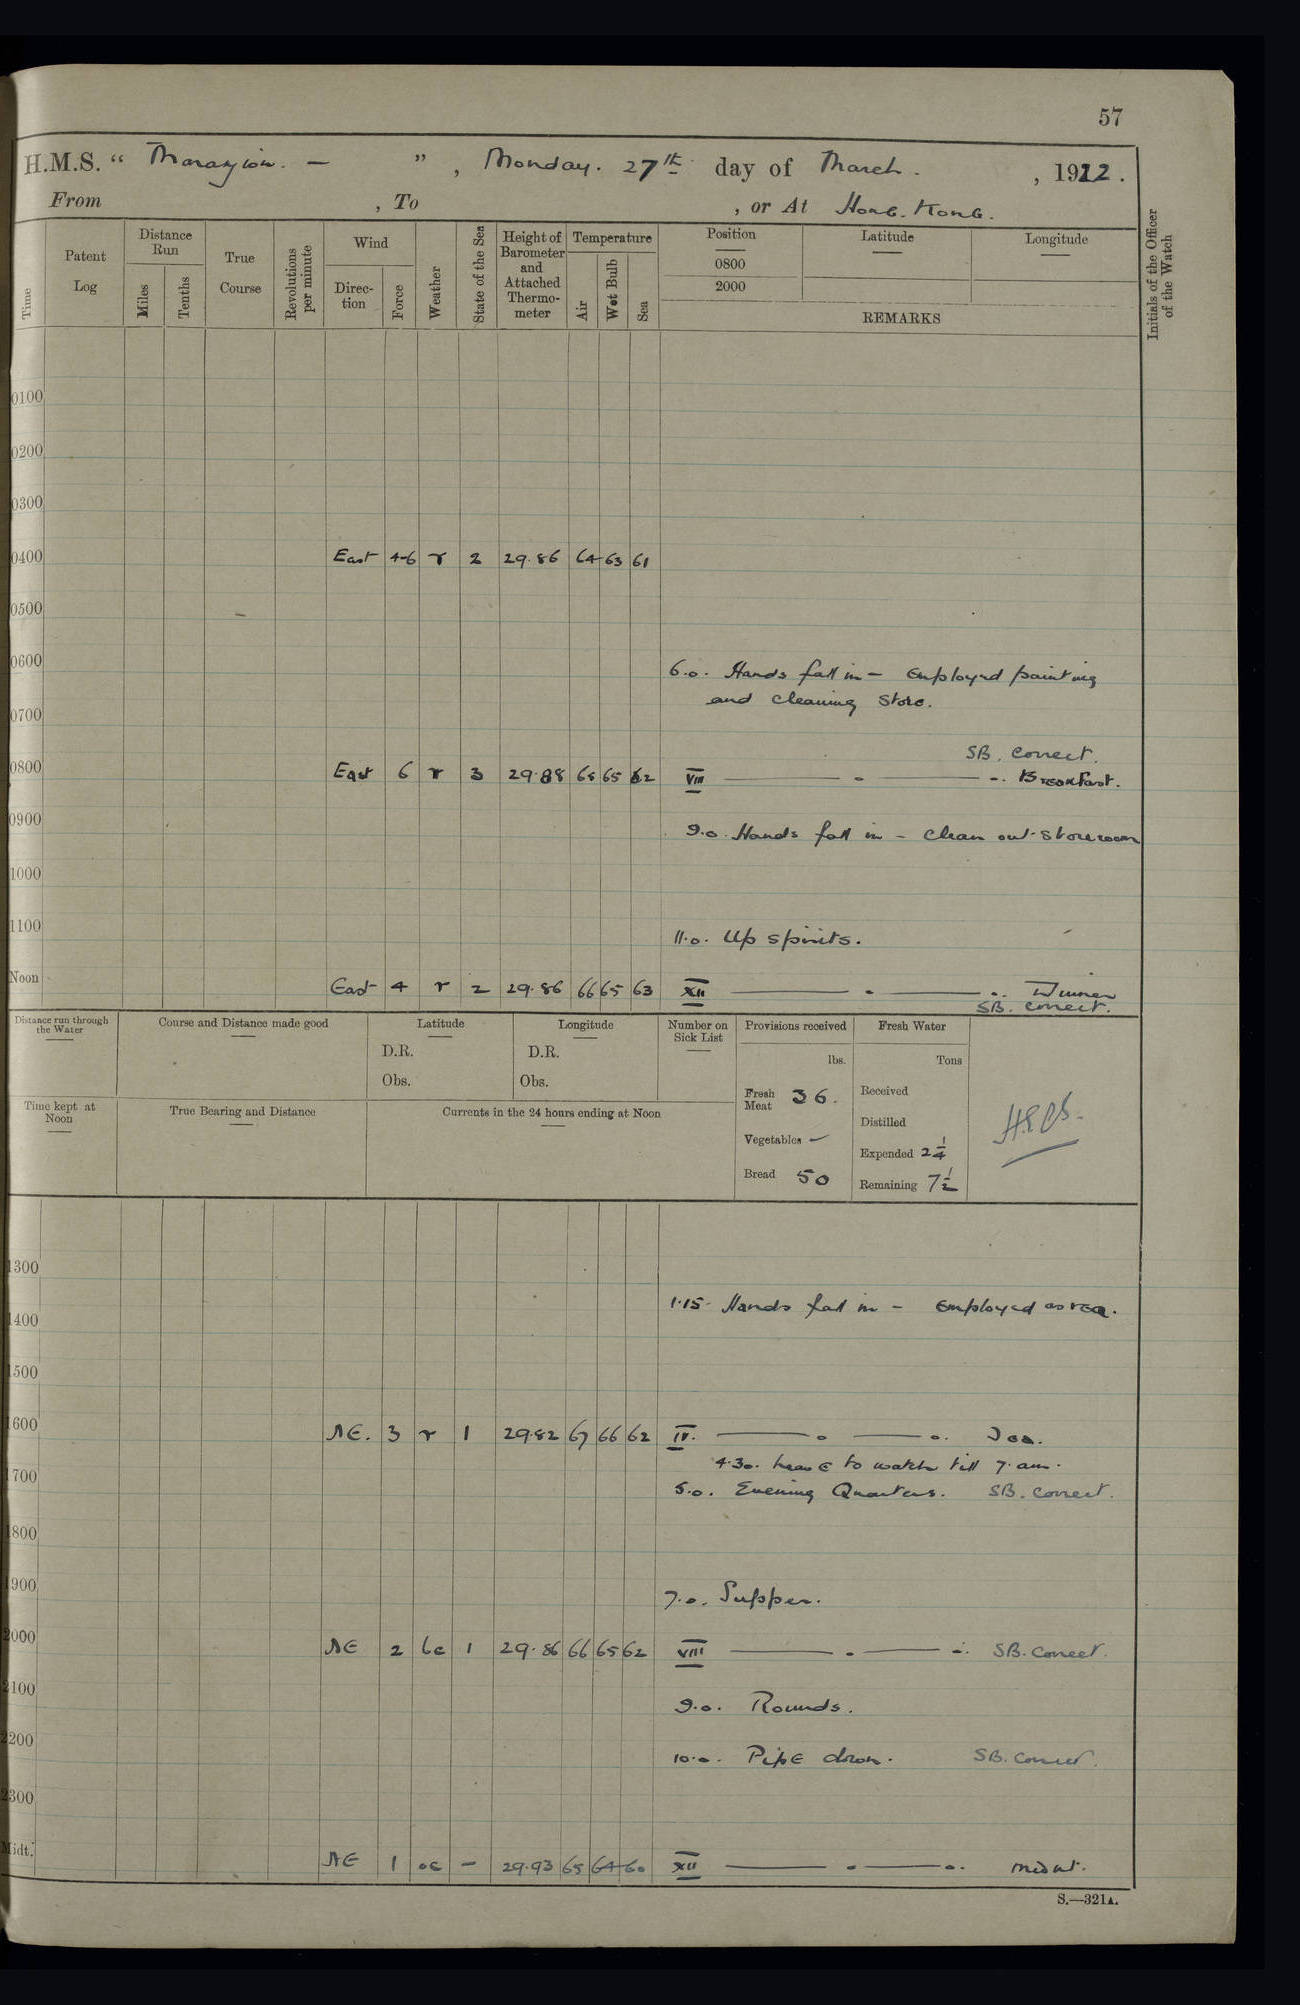 57
H.M.S. “ Marazion. — ” , Monday. 27th day of March . , 1922 .
From , To , or At Hong. Kong.
Time
Patent Log
Distance Run
Miles
Tenths
True Course
Revolutions per minute
Wind
Direction
Force
Weather
State of the Sea
Height of Barometer and Attached Thermometer
Temperature
Air
Wet Bulb
Sea
Position
0800
2000
Latitude
Longitude
REMARKS
Initials of the Officer of the Watch
0100
0200
0300
0400 East 4-6 r 2 29.86 64 63 61
0500
0600
6.0. Hands fall in — Employed painting
and cleaning store.
0700
SB. Correct.
0800 East 6 r 3 29.88 65 65 62 VIII — . — .. Breakfast.
0900 9.0. Hands fall in – Clean out storeroom
1000
1100 11.0. Up spirits.
Noon East 4 r 2 29.86 66 65 63 XII — . — .. Dinner
SB. correct.
Distance run through the Water
Course and Distance made good
Latitude
D.R.
Obs.
Longitude
D.R.
Obs.
Number on Sick List
Provisions received
lbs.
Fresh Meat 36.
Vegetables —
Bread 50
Fresh Water
Tons
Received
Distilled
Expended 2 1/4
Remaining 7 1/2
Time kept at Noon
True Bearing and Distance
Currents in the 24 hours ending at Noon
1300
1.15. Hands fall in – Employed as req.
1400
1500
1600 NE. 3 r 1 29.82 67 66 62 IV. — o — o. Tea.
4.30. Leave to watch till 7. am.
1700
5.0. Evening Quarters. SB. Correct.
1800
1900 7.0. Supper.
2000 NE 2 bc 1 29.86 66 65 62 VIII — . — .. SB. Correct.
2100 9.0. Rounds.
2200 10.0. Pipe down. SB. Correct.
2300
Midt. NE 1 oc — 29.93 65 64 60 XII — . — o. midnt.
S.—321A.